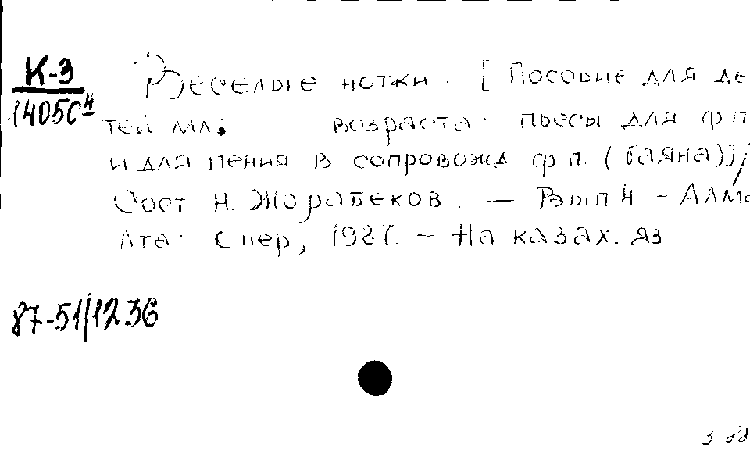 К-3
14050 Н
Веселые нотки. [Пособие для де
тей мл. возраста: пьесы для фп
и для пения в сопровожд фп. (баяна)]/
Сост Н. Жорабеков. — Вып 4 - Алма
Ата: , 1987. - На казах. яз
87-51/1236